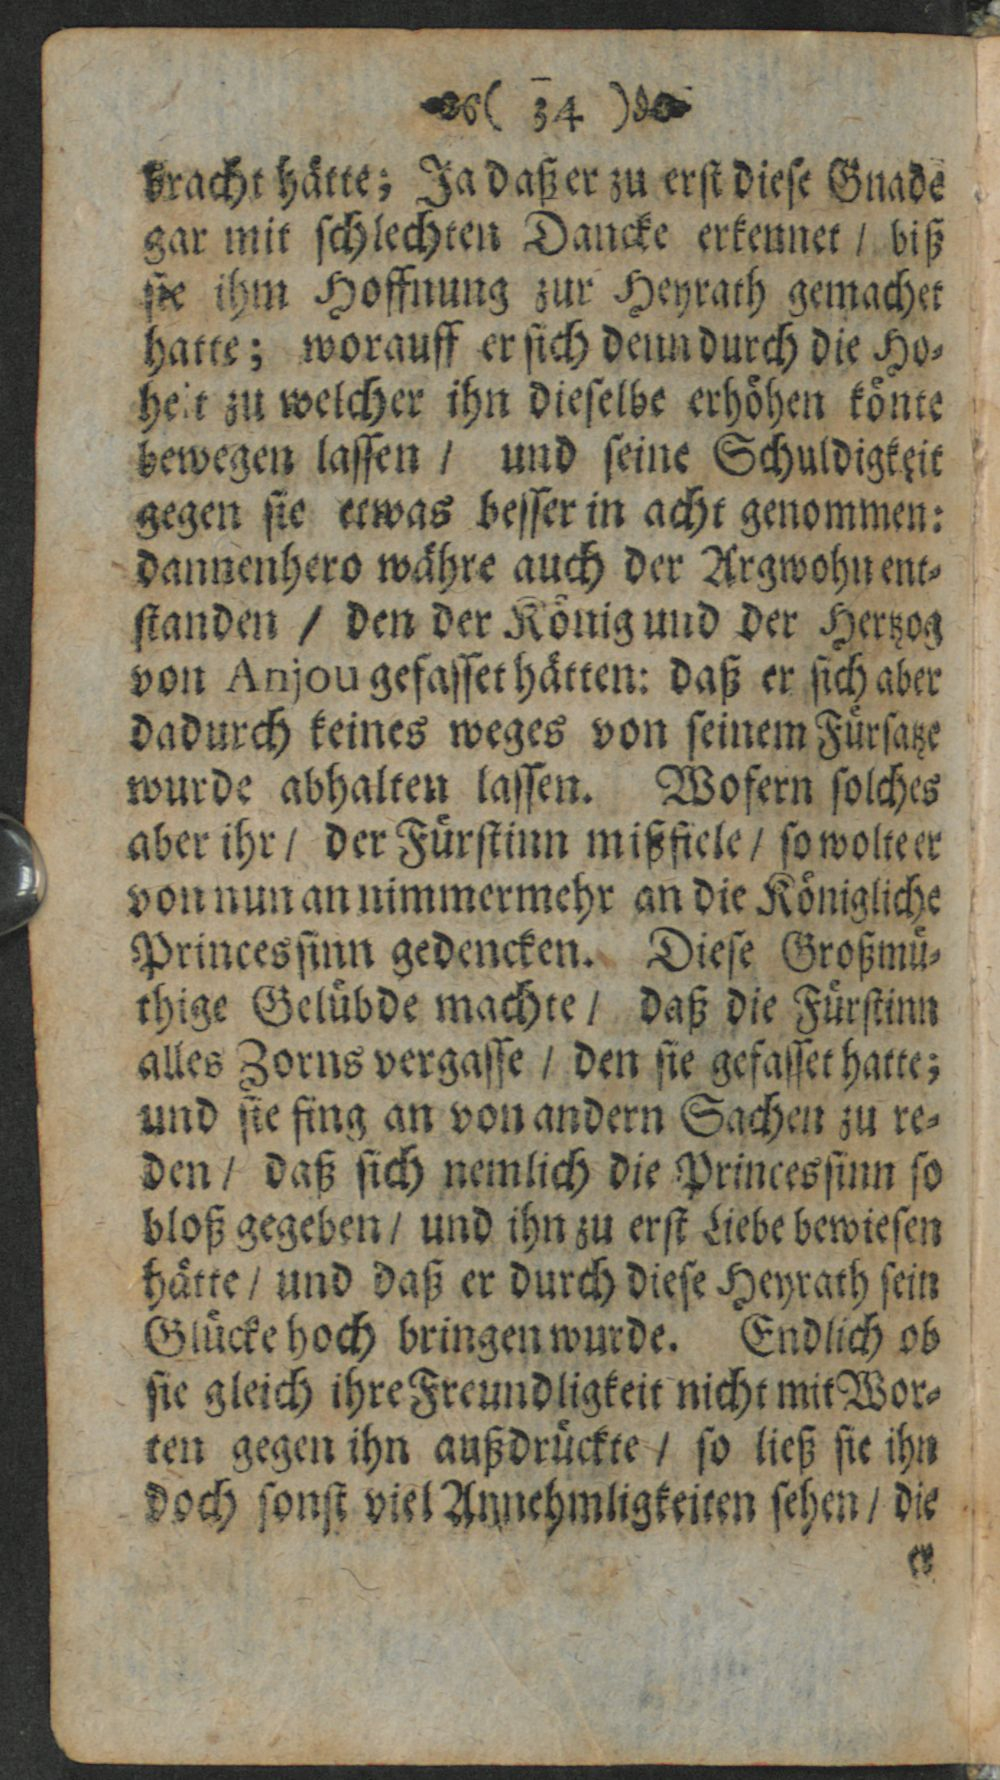 ( 34 )
bracht hätte; Ja daß er zu erst diese Gnade
gar mit schlechten Dancke erkennet / biß
sie ihm Hoffnung zur Heyrath gemachet
hatte; worauff er sich denn durch die Ho-
heit zu welcher ihn dieselbe erhöhen könte
bewegen lassen / und seine Schuldigkeit
gegen sie etwas besser in acht genommen:
dannenhero währe auch der Argwohn ent-
standen / den der König und der Hertzog
von Anjou gefasset hätten: daß er sich aber
dadurch keines weges von seinem Fürsatze
wurde abhalten lassen. Wofern solches
aber ihr / der Fürstinn mißfiele / so wolte er
von nun an nimmermehr an die Königliche
Princessinn gedencken. Diese Großmü-
thige Gelübde machte / daß die Fürstinn
alles Zorns vergasse / den sie gefasset hatte;
und sie fing an von andern Sachen zu re-
den / daß sich nemlich die Princessinn so
bloß gegeben / und ihn zu erst Liebe bewiesen
hätte / und daß er durch diese Heyrath sein
Glücke hoch bringen wurde. Endlich ob
sie gleich ihre Freundligkeit nicht mit Wor-
ten gegen ihn außdrückte / so ließ sie ihn
doch sonst viel Annehmligkeiten sehen / die
er